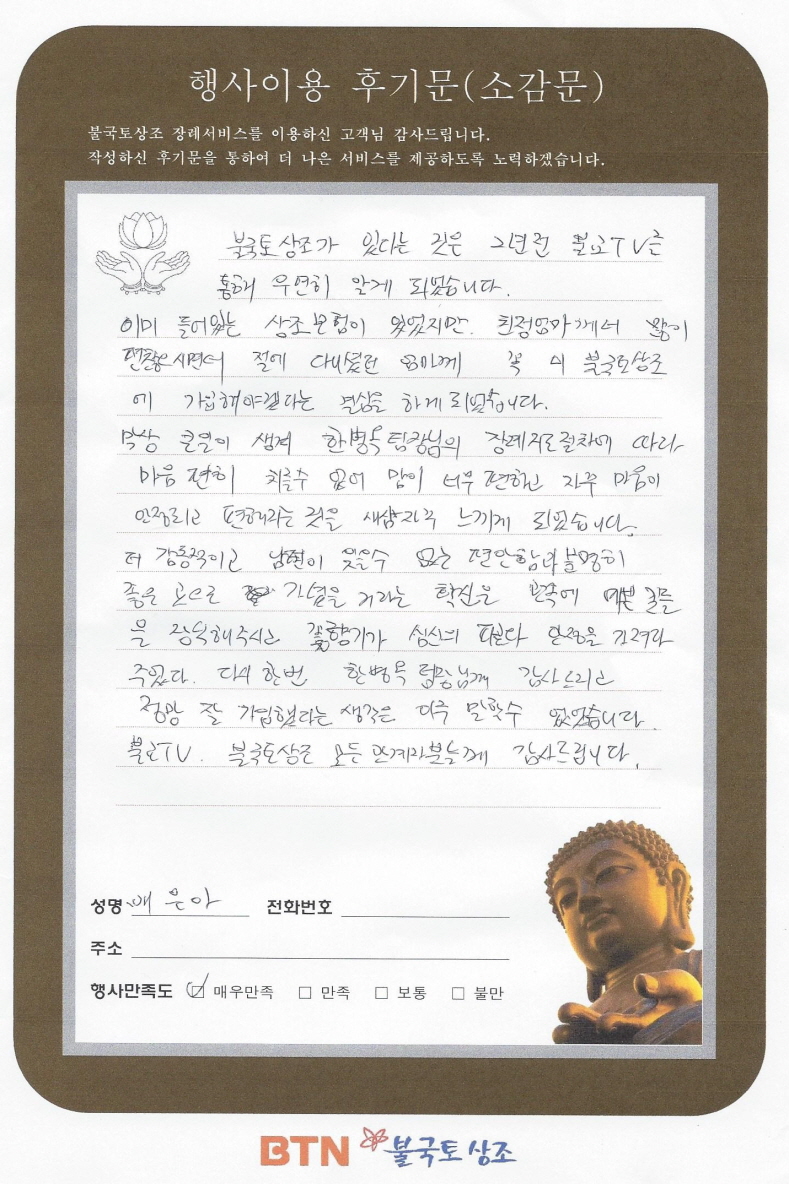 행사이용 후기문(소감문)
불국토상조 장례서비스를 이용하신 고객님 감사드립니다.
작성하신 후기문을 통하여 더 나은 서비스를 제공하도록 노력하겠습니다.
불국토상조가 있다는 것은 그년전 불교TV를
통해 우연히 알게 되었습니다.
이미 들어있는 상조보험이 있었지만. 친정엄마께서 많이
편찮으시면서 절에 다니셨던 엄마께 꼭 이 불국토상조
에 가입해야겠다는 결심을 하게 되었습니다.
막상 큰일이 생겨 한병옥팀장님의 장례지도절차에 따라
마음 편히 치를수 있어 맘이 너무 편하고 자꾸 마음이
안정되고 편해라는 것을 새삼자꾸 느끼게 되었습니다.
더 감동적이고 남편이 잊을수 없는 편안함과 분명히
좋은 곳으로 가셨을 거라는 확신은 관속에 예쁜 꽃들
을 장식해주시고 꽃향기가 심신의 안정을 가져다
주었다. 다시 한번 한병옥 팀장님께 감사드리고
정말 잘 가입했다는 생각은 더욱 말할수 없었습니다.
불교TV. 불국토상조 모든 관계자분들께 감사드립니다.
성명 배은아 전화번호
주소
행사만족도 매우만족 만족 보통 불만
BTN 불국토상조